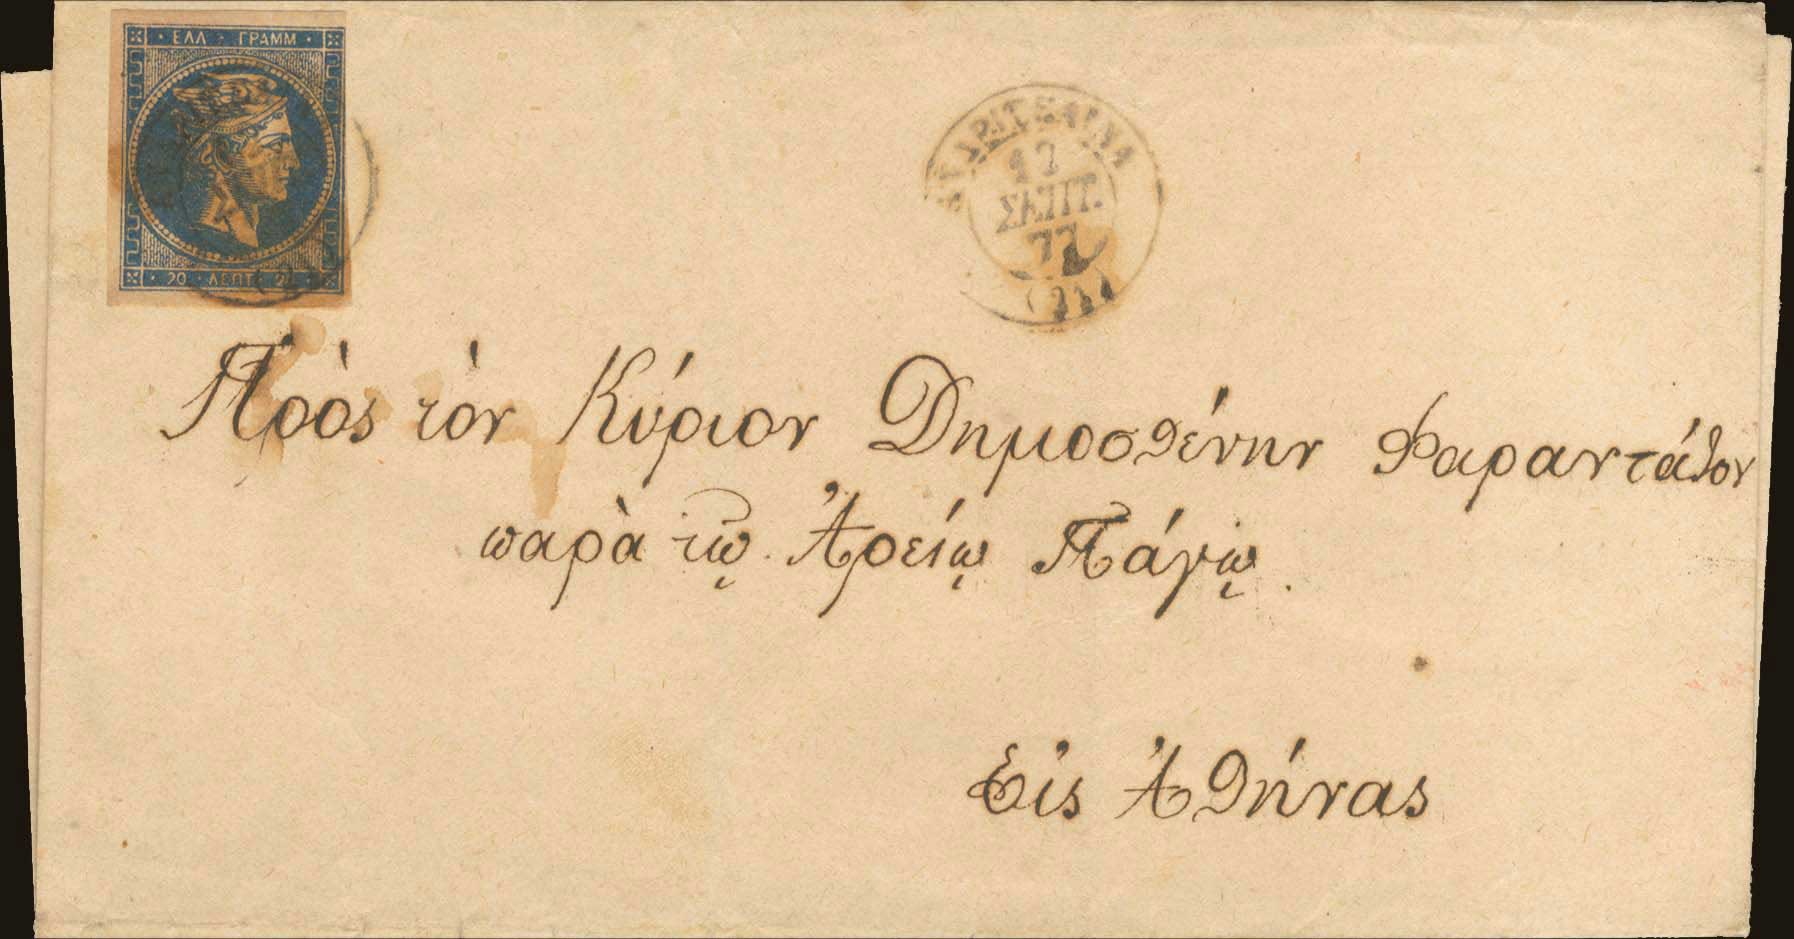 ΕΛΛ ΓΡΑΜΜ
20 ΛΕΠΤ 20
ΑΝΔΡΙΤΣΑΙΝΑ
17
ΣΕΠΤ.
77
Πρὸς τὸν Κύριον Δημοσθένην Φαραντάτον
παρὰ τῷ Ἀρείῳ Πάγῳ.
Εἰς Ἀθήνας